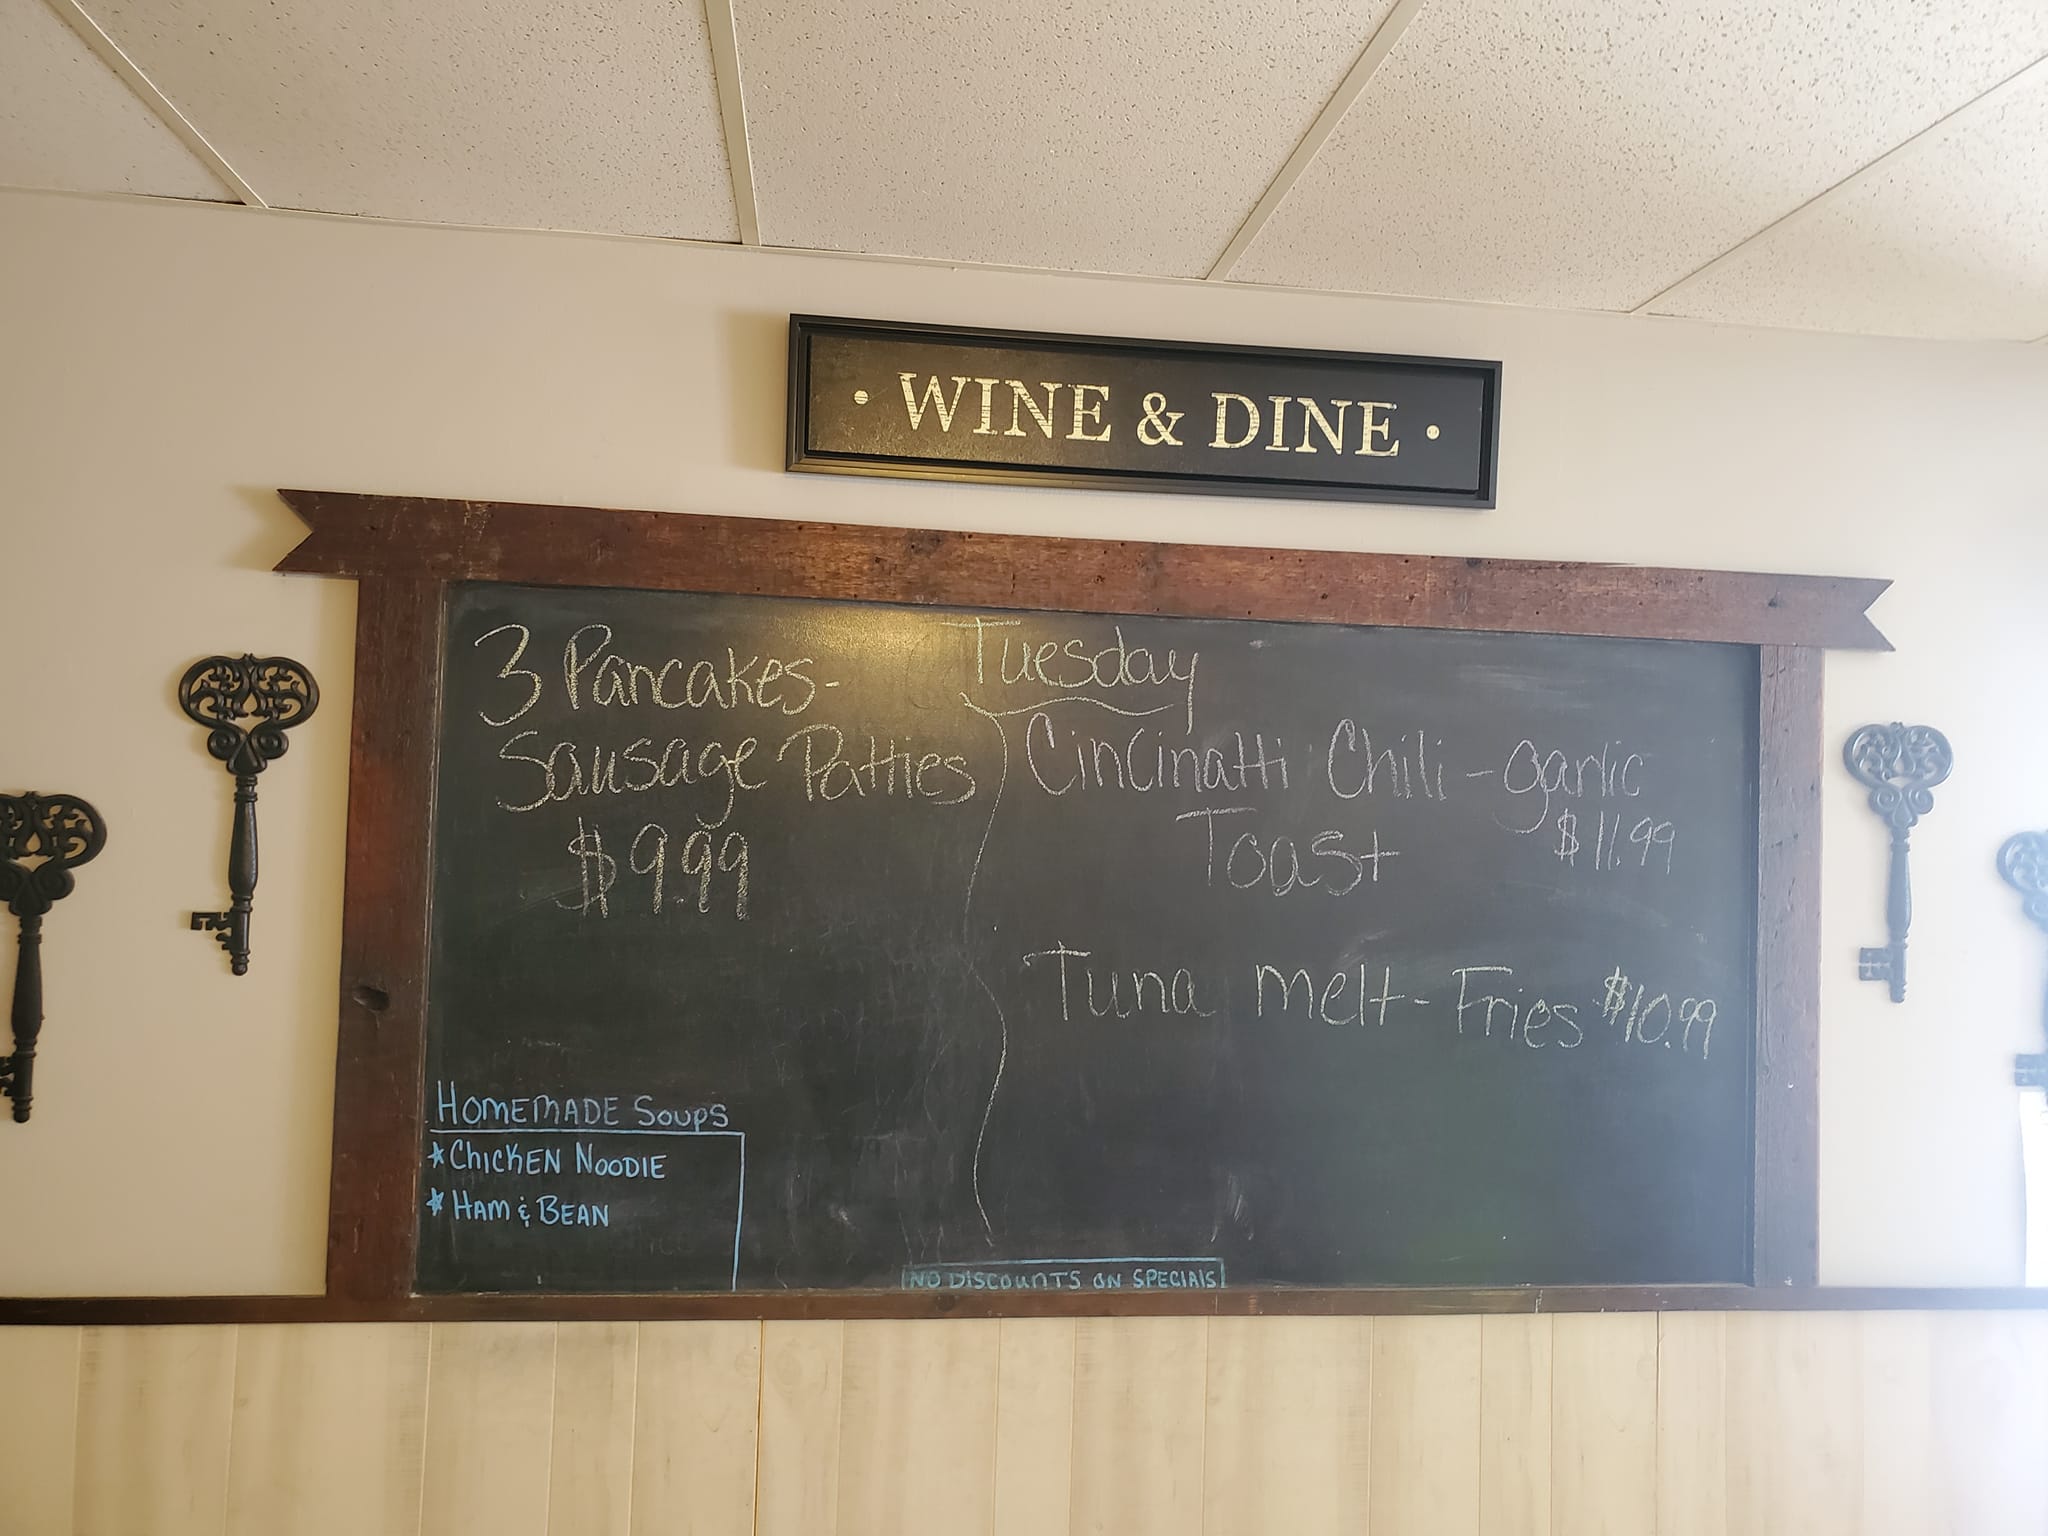 • WINE & DINE •
Tuesday
3 Pancakes-
Sausage Patties
$9.99
Cincinatti Chili - garlic
Toast $11.99
Tuna melt - Fries $10.99
HOMEMADE SOUPS
* CHICKEN NOODLE
* HAM & BEAN
NO DISCOUNTS ON SPECIALS